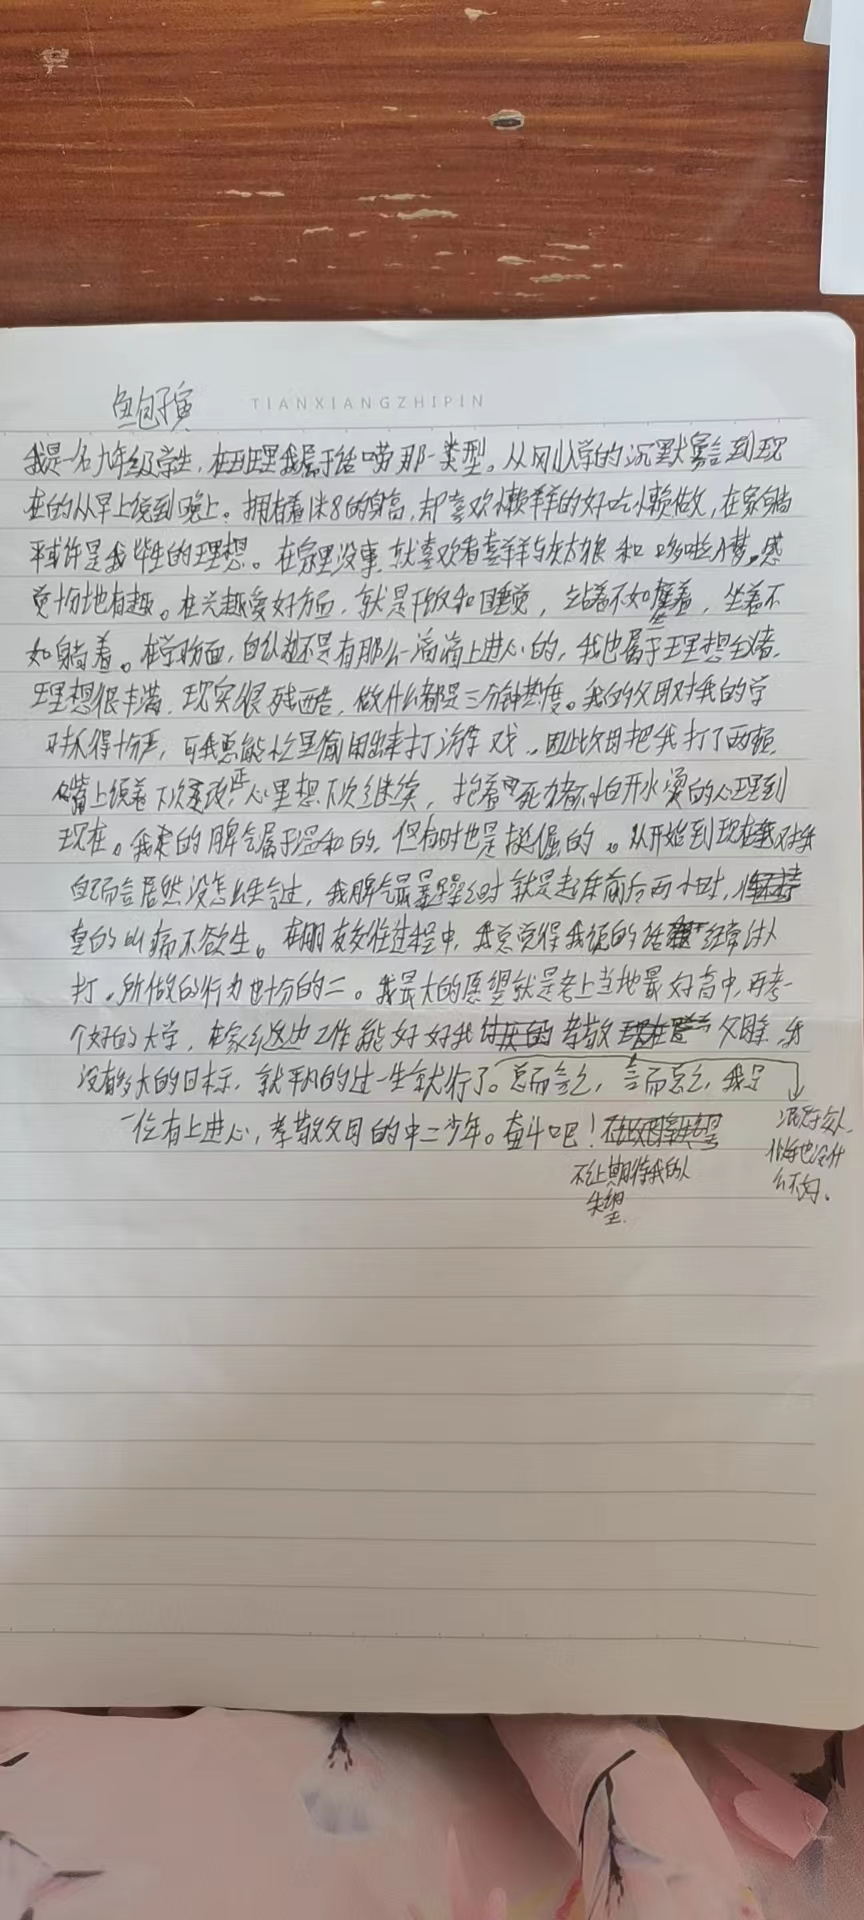 鱼包子寅 TIANXIANGZHIPIN
我是一名九年级学生，在班里我属于话唠那一类型。从刚入学的沉默寡言到现
在的从早上说到晚上。拥有着1米8的身高，却喜欢懒羊羊的好吃懒做，在家躺
平或许是我毕生的理想。在家里没事，就喜欢看喜羊羊与灰太狼和哆啦A梦。感
觉十分地有趣。在兴趣爱好方面，就是干饭和睡觉，站着不如坐着，坐着不
如躺着。在学习方面，自认为还是有那么一滴滴上进心的，我也属于理想主义者，
理想很丰满，现实很残酷，做什么都是三分钟热度。我的父母对我的学
习抓得十分严，可我总能从里偷用出来打游戏，因此父母把我打了两顿，
嘴上说着下次要改正，心里想下次继续，抱着死猪不怕白开水烫的心理到
现在。我的脾气属于温和的，但有时也是挺倔的。从开始到现在对我
自己而言居然没怎么生气过，我脾气最暴躁时就是起床前后两小时，
真的叫痛不欲生。在朋友交往过程中，我总觉得我说的话经常讨人
打，所做的行为也十分的二。我最大的愿望就是考上当地最好高中，再考一
个好的大学，在家乡这边工作能好好我孝敬父母，我
没有多大的目标，就平凡的过一生就行了。总而言之，言而总之，我是
一位有上进心，孝敬父母的中二少年。奋斗吧！
不让期待我的人
失望
么不好。